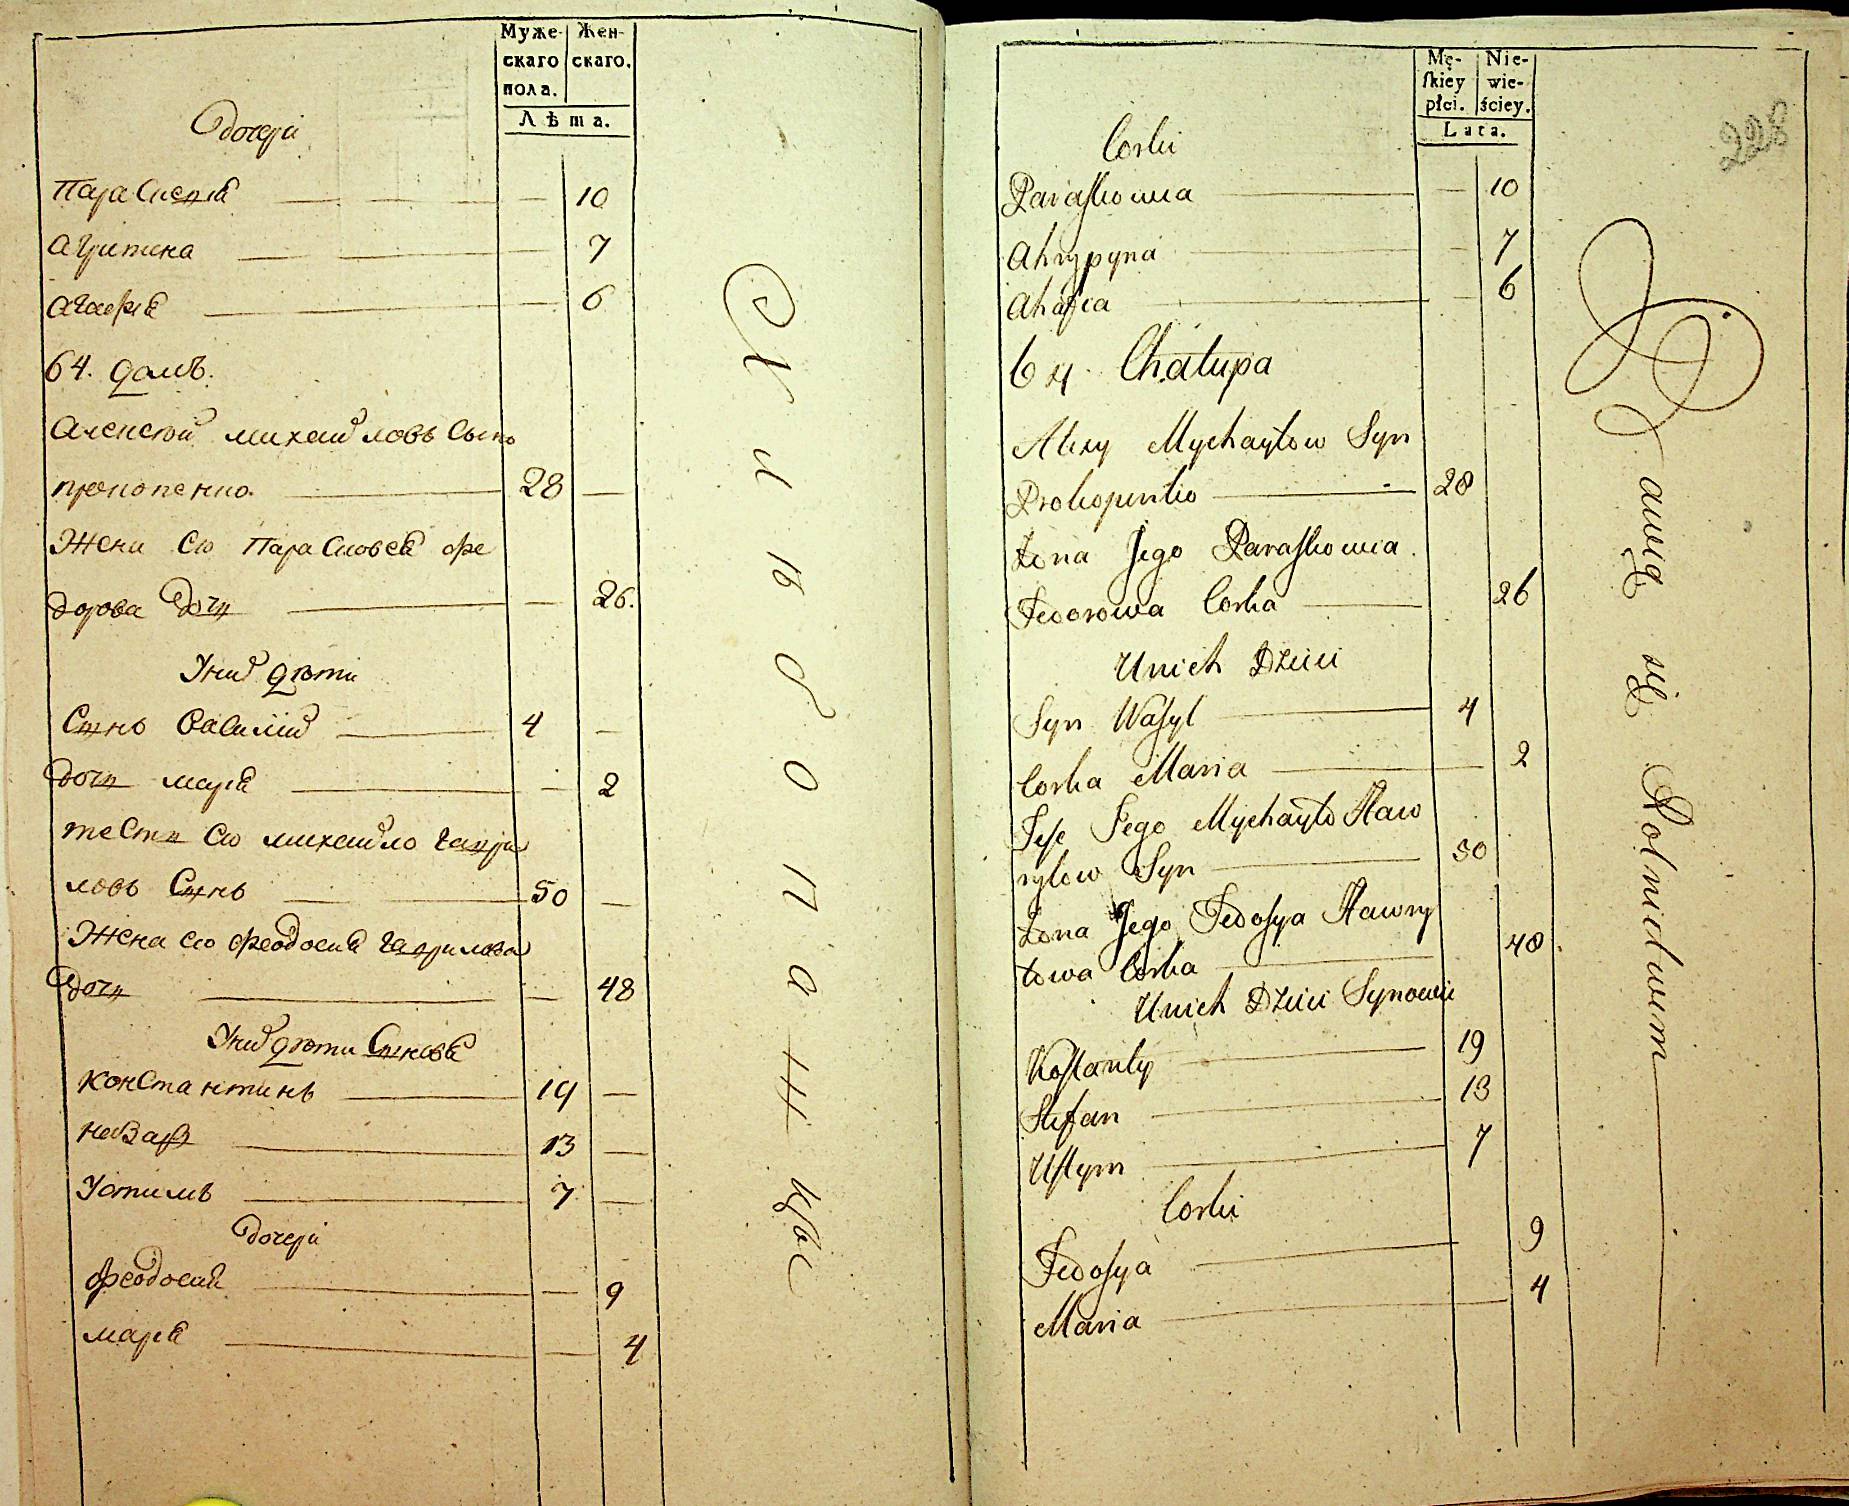 Муже- Жен-
скаго скаго.
пола.
Лѣта.
Дочери
Параскевiя 10
Агрипина 7
Агафiя 6
64. домъ.
Алексѣй михайловъ Сынъ
прокопенко. 28
Жена Ею Парасковея фе
дорова Дочь 26.
У них дѣти
Сынъ Василiй 4
Дочь марiя 2
тесть Ею михайло гаври
ловъ Сынъ 50
Жена ею феодосия гаврилова
Дочь 48
У них дѣти Сыновя
Константинъ 19
13
Устимъ 7
Дочери
феодосия 9
марiя 4
Хлибопашцы
Mę- Nie-
skiey wie-
płci. ściey.
Lata.
228
Corki
Paraskowia 10
Ahrypyna 7
Ahafia 6
64 Chałupa
Alexy Mychayłow Syn
Prokopenko 28
Żona Jego Paraskowia
Fedorowa Corka 26
Unich Dzieci
Syn Wasyl 4
Corka Maria 2
Teść Jego Mychayło Haw
ryłow Syn 50
Żona Jego Fedosya Hawry
łowa Corka 48
Unich Dzieci Synowie
Kostanty 19
Stefan 13
Ustym 7
Corki
Fedosya 9
Maria 4
Bawią się Rolnictwem